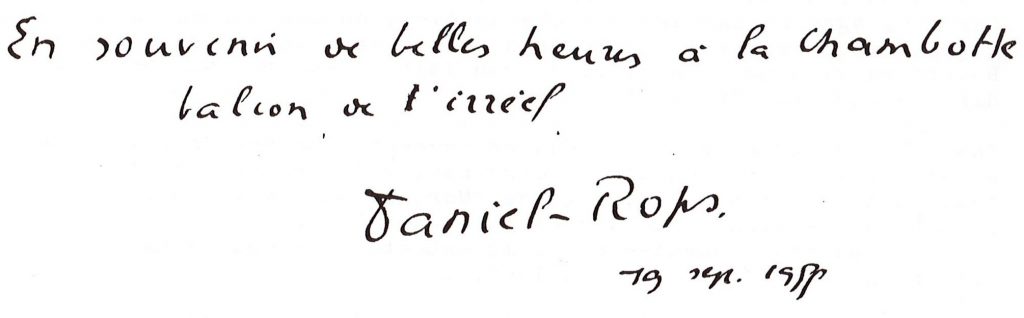 En souvenir de belles heures à la Chambotte
balcon de l'irréel.
Daniel-Rops.
19 sep. 1955